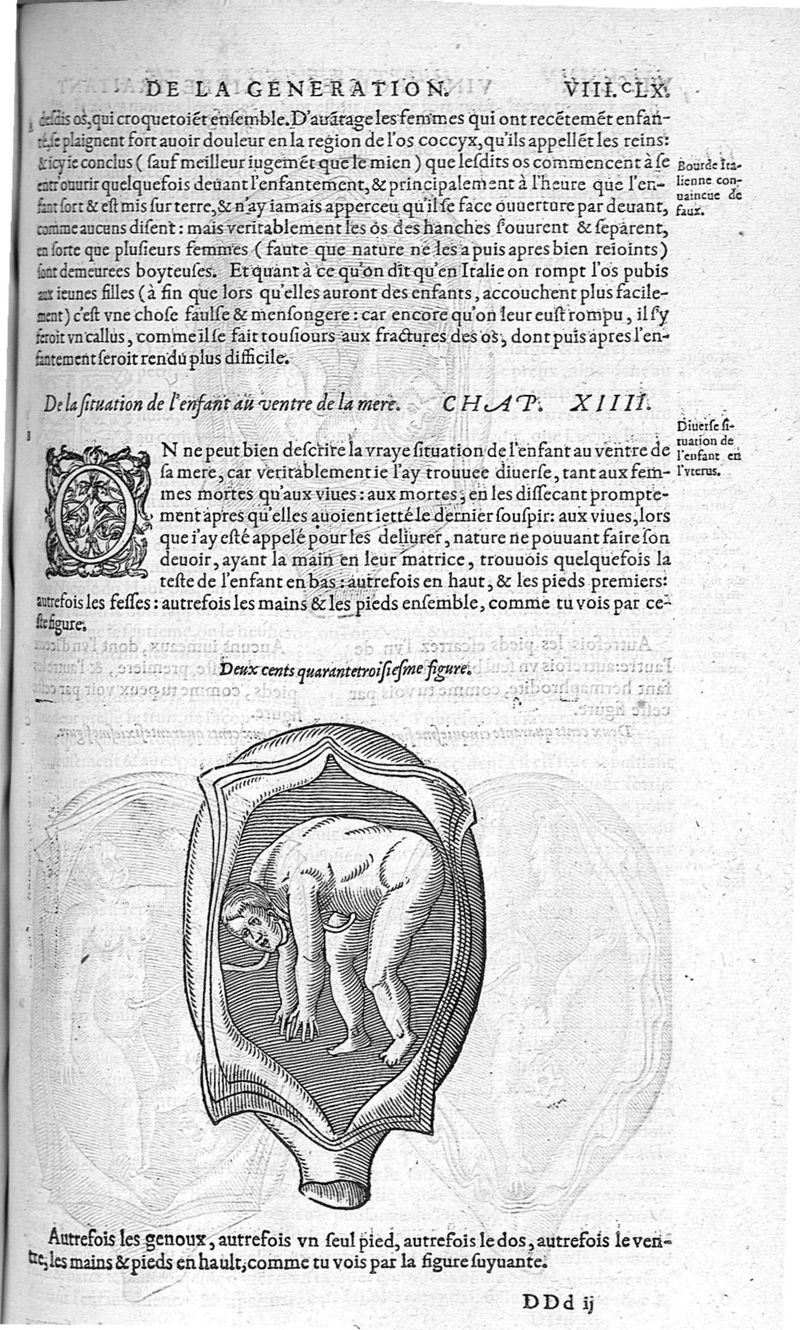 DE LA GENERATION. VIII.ᶜLX.
desdis os, qui croquetoiẽt ensemble. D'auãtage les femmes qui ont recẽtemẽt enfan-
té, se plaignent fort auoir douleur en la region de l'os coccyx, qu'ils appellẽt les reins:
& icy ie conclus ( sauf meilleur iugemẽt que le mien ) que lesdits os commencent à se
entrouurir quelquefois deuant l'enfantement, & principalement à l'heure que l'en-
fant sort & est mis sur terre, & n'ay iamais apperceu qu'il se face ouuerture par deuant,
comme aucuns disent : mais veritablement les os des hanches s'ouurent & se separent,
en sorte que plusieurs femmes ( faute que nature ne les a puis apres bien reioints )
sont demeurees boyteuses. Et quant à ce qu'on dit qu'en Italie on rompt l'os pubis
aux ieunes filles ( à fin que lors qu'elles auront des enfants, accouchent plus facile-
ment ) c'est vne chose faulse & mensongere : car encore qu'on leur eust rompu, il s'y
feroit vn callus, comme il se fait tousiours aux fractures des os, dont puis apres l'en-
fantement seroit rendu plus difficile.
Bourde Ita-
lienne con-
uaincue de
faux.
De la situation de l'enfant au ventre de la mere. CHAP. XIIII.
ON ne peut bien descrire la vraye situation de l'enfant au ventre de
sa mere, car veritablement ie l'ay trouuee diuerse, tant aux fem-
mes mortes qu'aux viues : aux mortes, en les dissecant prompte-
ment apres qu'elles auoient ietté le dernier souspir : aux viues, lors
que i'ay esté appelé pour les deliurer, nature ne pouuant faire son
deuoir, ayant la main en leur matrice, trouuois quelquefois la
teste de l'enfant en bas : autrefois en haut, & les pieds premiers:
autrefois les fesses : autrefois les mains & les pieds ensemble, comme tu vois par ce-
ste figure.
Diuerse si-
tuation de
l'enfant en
l'vterus.
Deux cents quarantetroisiesme figure.
Autrefois les genoux, autrefois vn seul pied, autrefois le dos, autrefois le ven-
tre, les mains & pieds en hault, comme tu vois par la figure suyuante.
DDd ij